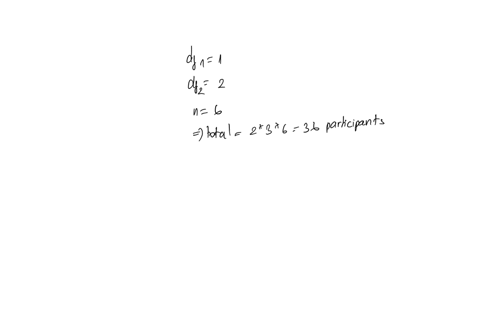 df₁ = 1
df₂ = 2
n = 6
⇒ total = 2*3*6 = 36 participants